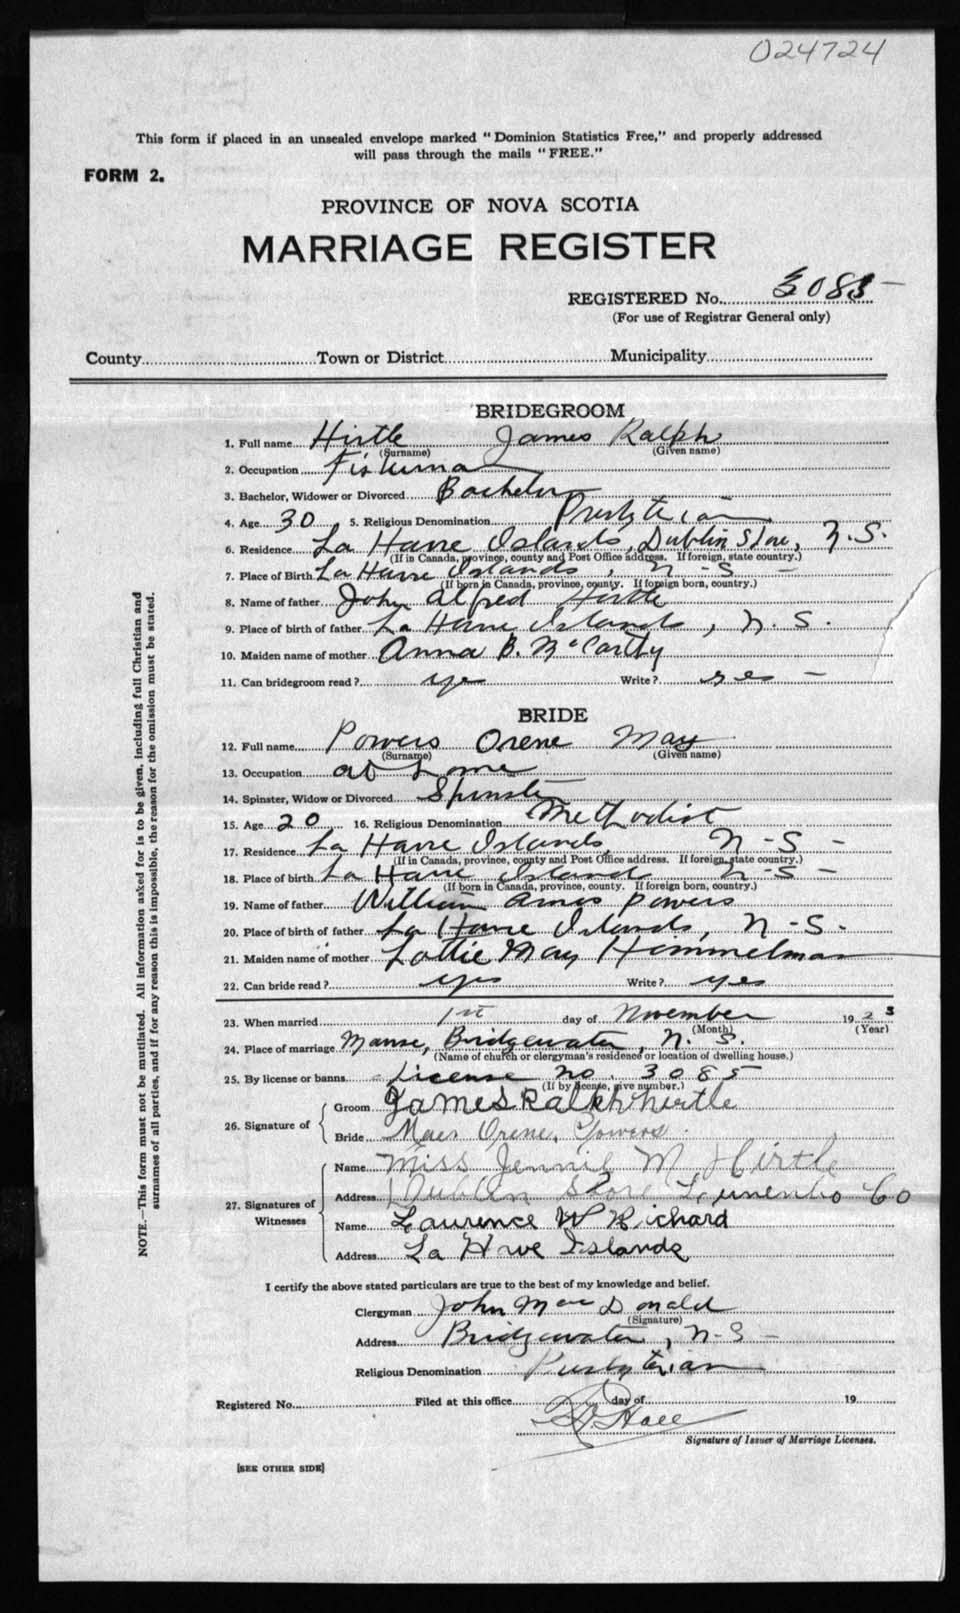 024724
This form if placed in an unsealed envelope marked "Dominion Statistics Free," and properly addressed
will pass through the mails "FREE."
FORM 2.
PROVINCE OF NOVA SCOTIA
MARRIAGE REGISTER
REGISTERED No. 3085 -
(For use of Registrar General only)
County Town or District Municipality
BRIDEGROOM
1. Full name Hirtle James Ralph
(Surname) (Given name)
2. Occupation Fisherman
3. Bachelor, Widower or Divorced Bachelor
4. Age 30 5. Religious Denomination Presbyterian
6. Residence La Have Islands, Dublin Shore, N.S.
(If in Canada, province, county and Post Office address. If foreign, state country.)
7. Place of Birth La Have Islands, N-S -
(If born in Canada, province, county. If foreign born, country.)
8. Name of father John Alfred Hirtle
9. Place of birth of father La Have Islands, N.S.
10. Maiden name of mother Anna B. McCarthy
11. Can bridegroom read? yes Write? yes -
BRIDE
12. Full name Powers Orene May
(Surname) (Given name)
13. Occupation at home
14. Spinster, Widow or Divorced Spinster
15. Age 20 16. Religious Denomination Methodist
17. Residence La Have Islands, N-S -
(If in Canada, province, county and Post Office address. If foreign, state country.)
18. Place of birth La Have Islands N-S -
(If born in Canada, province, county. If foreign born, country.)
19. Name of father William Amos Powers
20. Place of birth of father La Have Islands, N-S.
21. Maiden name of mother Lottie May Hammelman
22. Can bride read? yes Write? yes
23. When married 1st day of November 1923
(Month) (Year)
24. Place of marriage Manse, Bridgewater, N.S.
(Name of church or clergyman's residence or location of dwelling house.)
25. By license or banns License No. 3085
(If by license, give number.)
26. Signature of
Groom James Ralph Hirtle
Bride Orene, Powers.
27. Signatures of Witnesses
Name Miss Jennie M Hirtle
Address Dublin Shore Lunenbo Co
Name Laurence W Richard
Address La Have Islands
I certify the above stated particulars are true to the best of my knowledge and belief.
Clergyman John MacDonald
(Signature)
Address Bridgewater, N-S -
Religious Denomination Presbyterian
Registered No. Filed at this office day of 19
Signature of Issuer of Marriage Licenses.
[SEE OTHER SIDE]
NOTE.—This form must not be mutilated. All information asked for is to be given, including full Christian and
surnames of all parties, and if for any reason this is impossible, the reason for the omission must be stated.